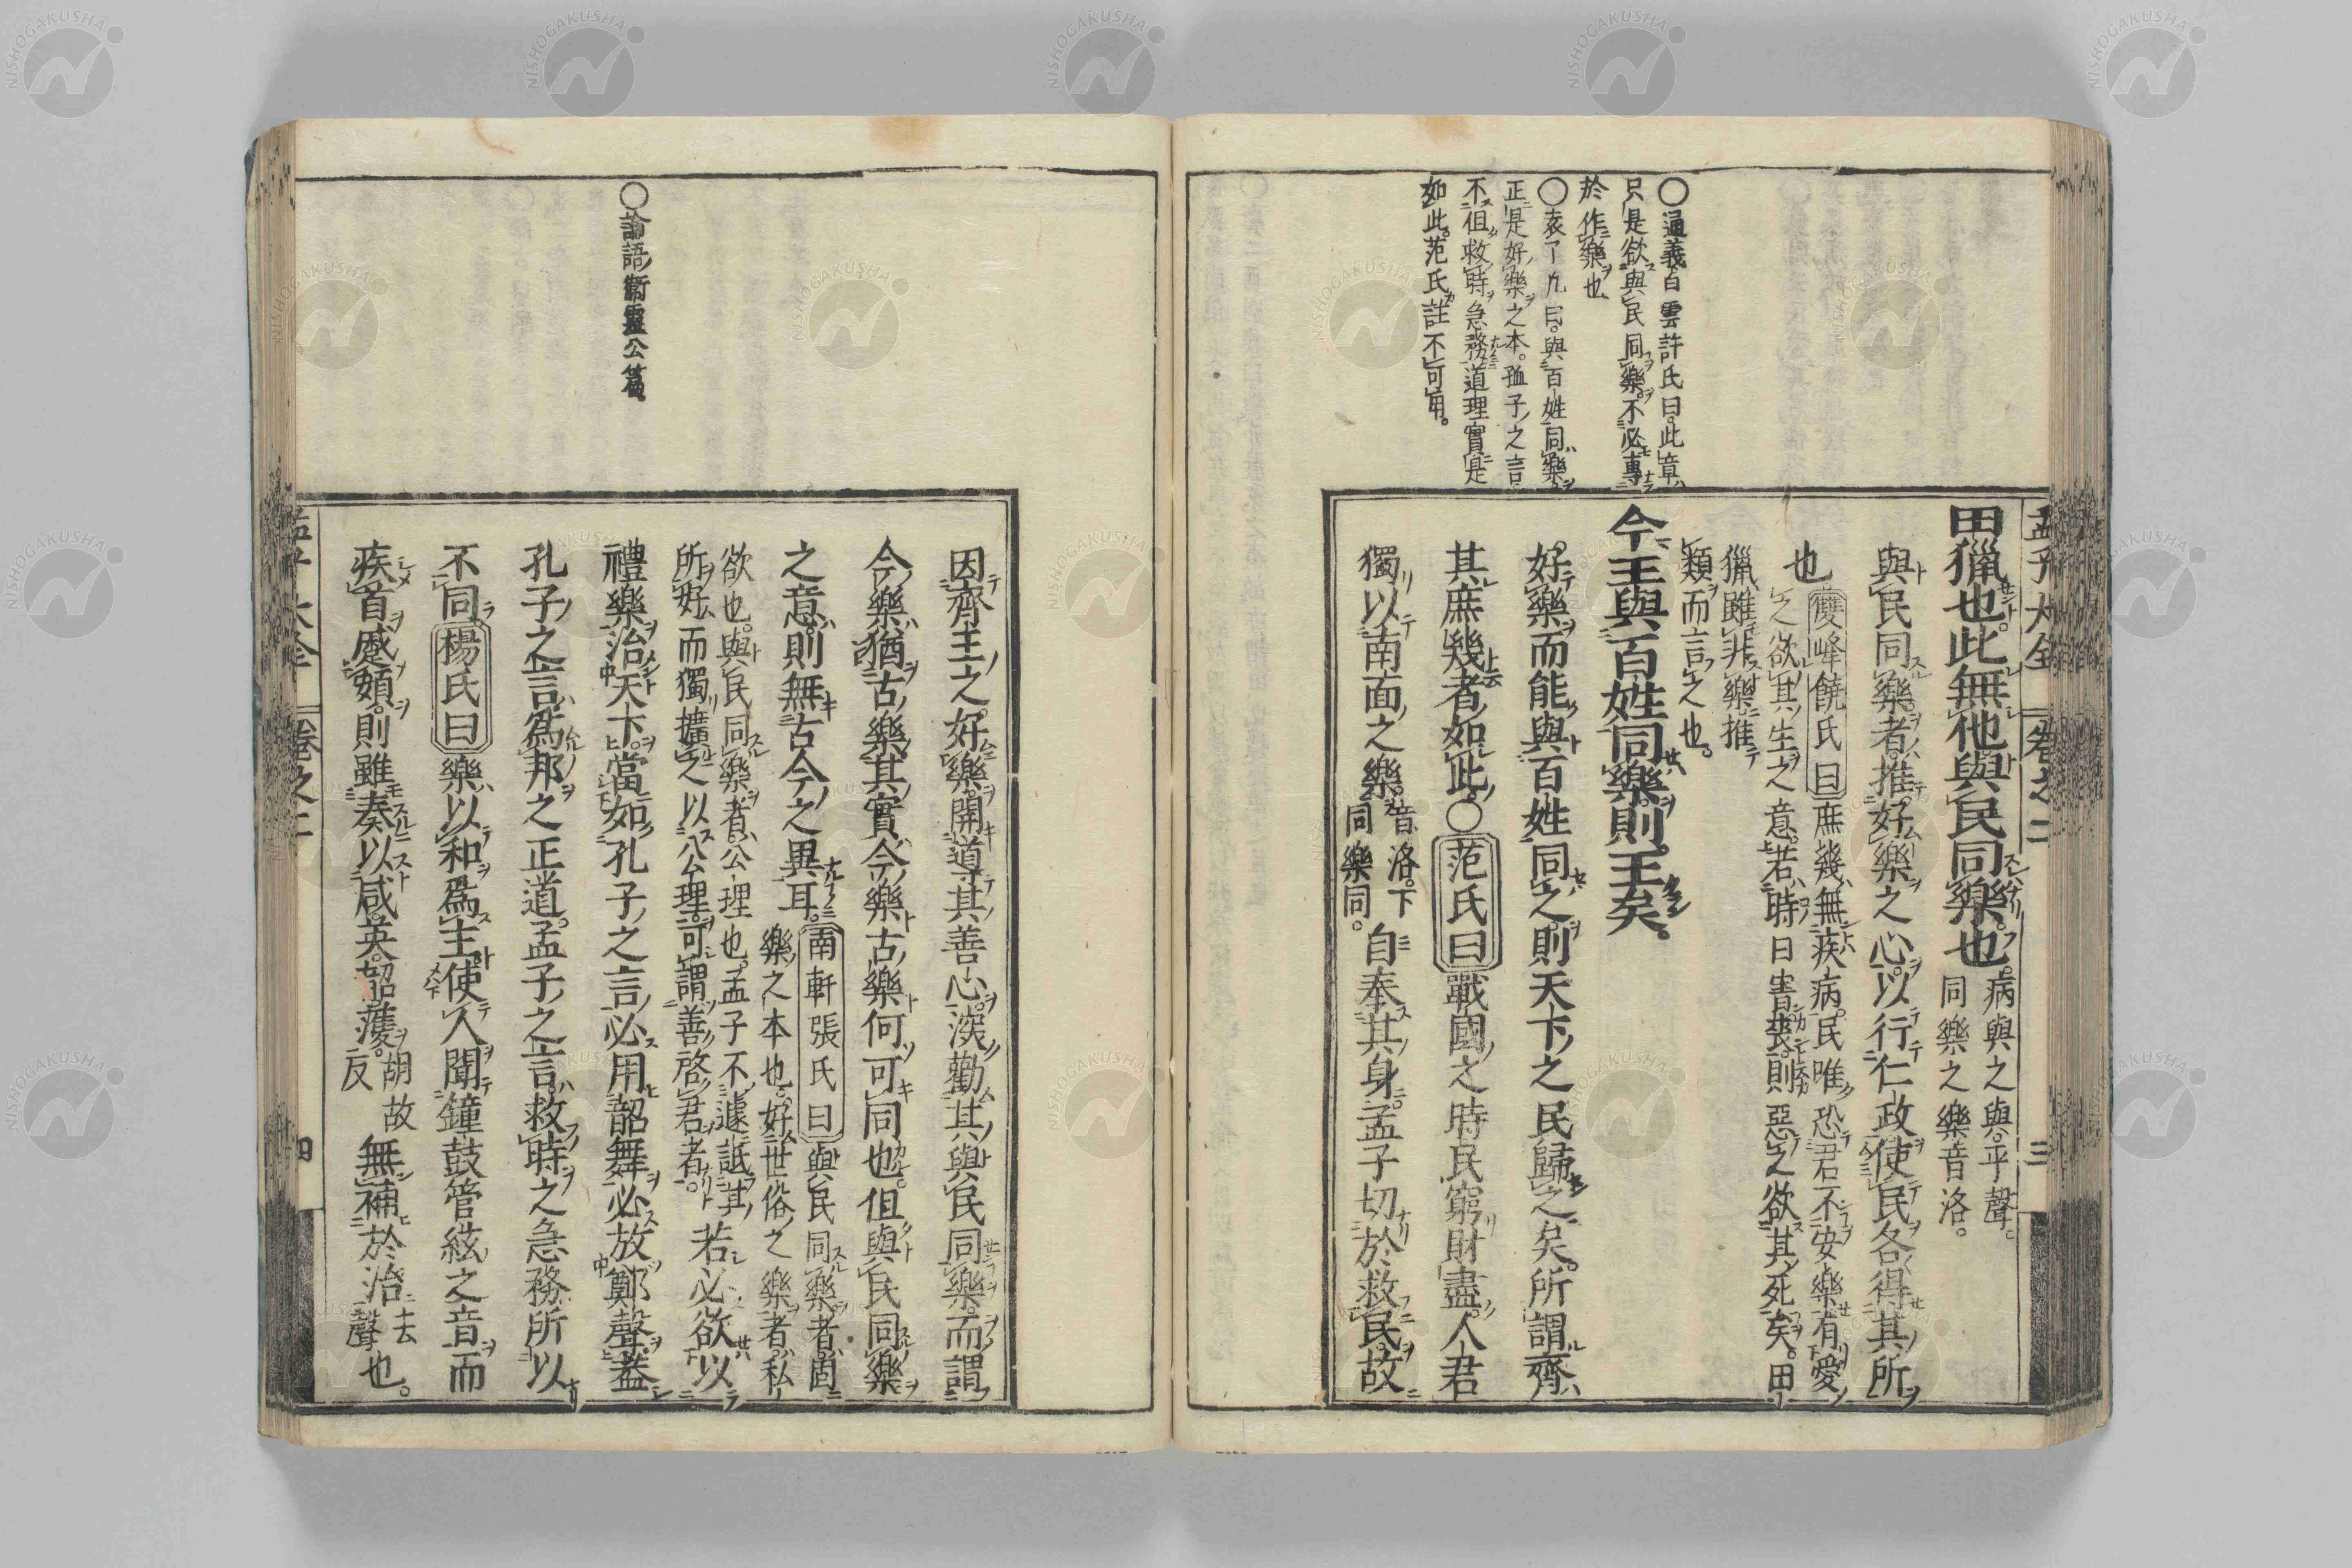 孟子大全 卷之二 三
○通義白雲許氏曰此章
只是欲與民同樂不必專
於作樂也
○袁了凡曰與百姓同樂
正是好樂之本孤子之言
不但救時急務道理實是
如此范氏註不可用
田獵也此無他與民同樂也
病與之與平聲
同樂之樂音洛
與民同樂者推好樂之心以行仁政使民各得其所
也
雙峰饒氏曰庶幾無疾病民唯恐君不安樂有愛
之欲其生之意若時日害喪則惡之欲其死矣田
獵雖非樂推
類而言之也
今王與百姓同樂則王矣
好樂而能與百姓同之則天下之民歸之矣所謂齊
其庶幾者如此○范氏曰戰國之時民窮財盡人君
獨以南面之樂
音洛下
同樂同
自奉其身孟子切於救民故
○論語衛靈公篇
因齊王之好樂開導其善心深勸其與民同樂而謂
今樂猶古樂其實今樂古樂何可同也但與民同樂
之意則無古今之異耳
南軒張氏曰與民同樂者固
樂之本也好世俗之樂者私
欲也與民同樂者公理也孟子不遽詆其
所好而獨擴之以公理可謂善啓君者
若必欲以
禮樂治天下當如孔子之言必用韶舞必放鄭聲蓋
孔子之言爲邦之正道孟子之言救時之急務所以
不同楊氏曰樂以和爲主使人聞鐘鼓管絃之音而
疾首蹙頞則雖奏以咸英韶濩
胡故
反
無補於治
去
聲
也
孟子大全 卷之二 四
NISHOGAKUSHA